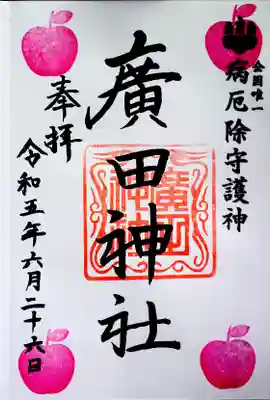 全国唯一
病厄除守護神
廣田神社
廣田神社
奉拝
令和五年六月二十六日